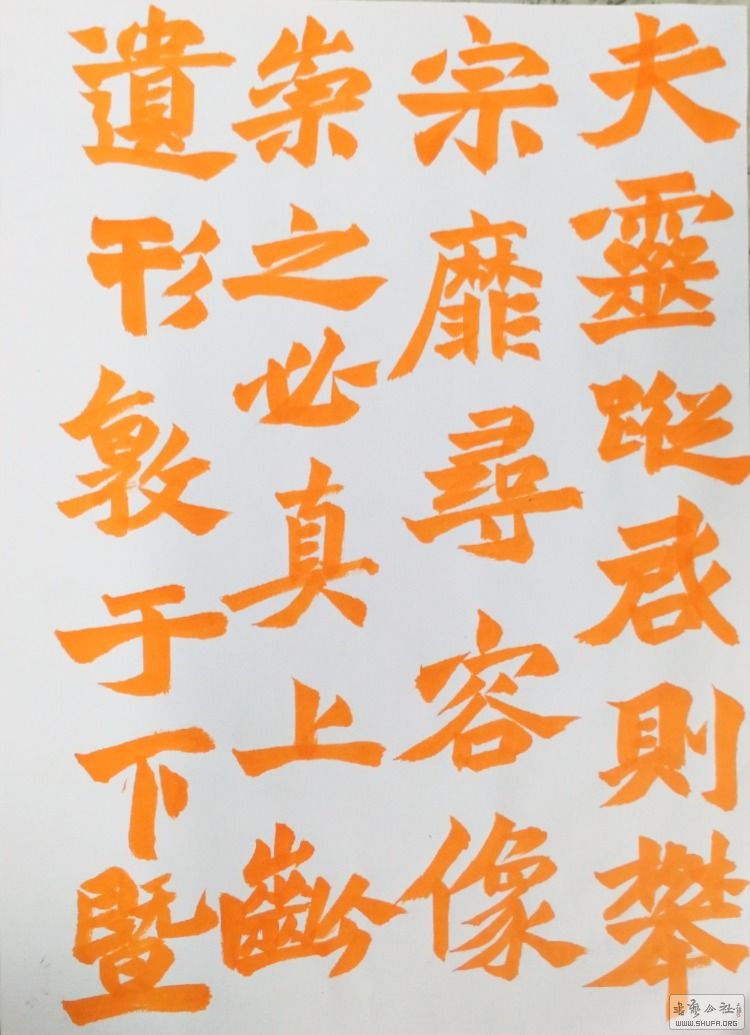 夫靈蹤启則攀
宗靡尋容像
崇之必真上齡
遺形敷于下暨
书艺公社
WWW.SHUFA.ORG